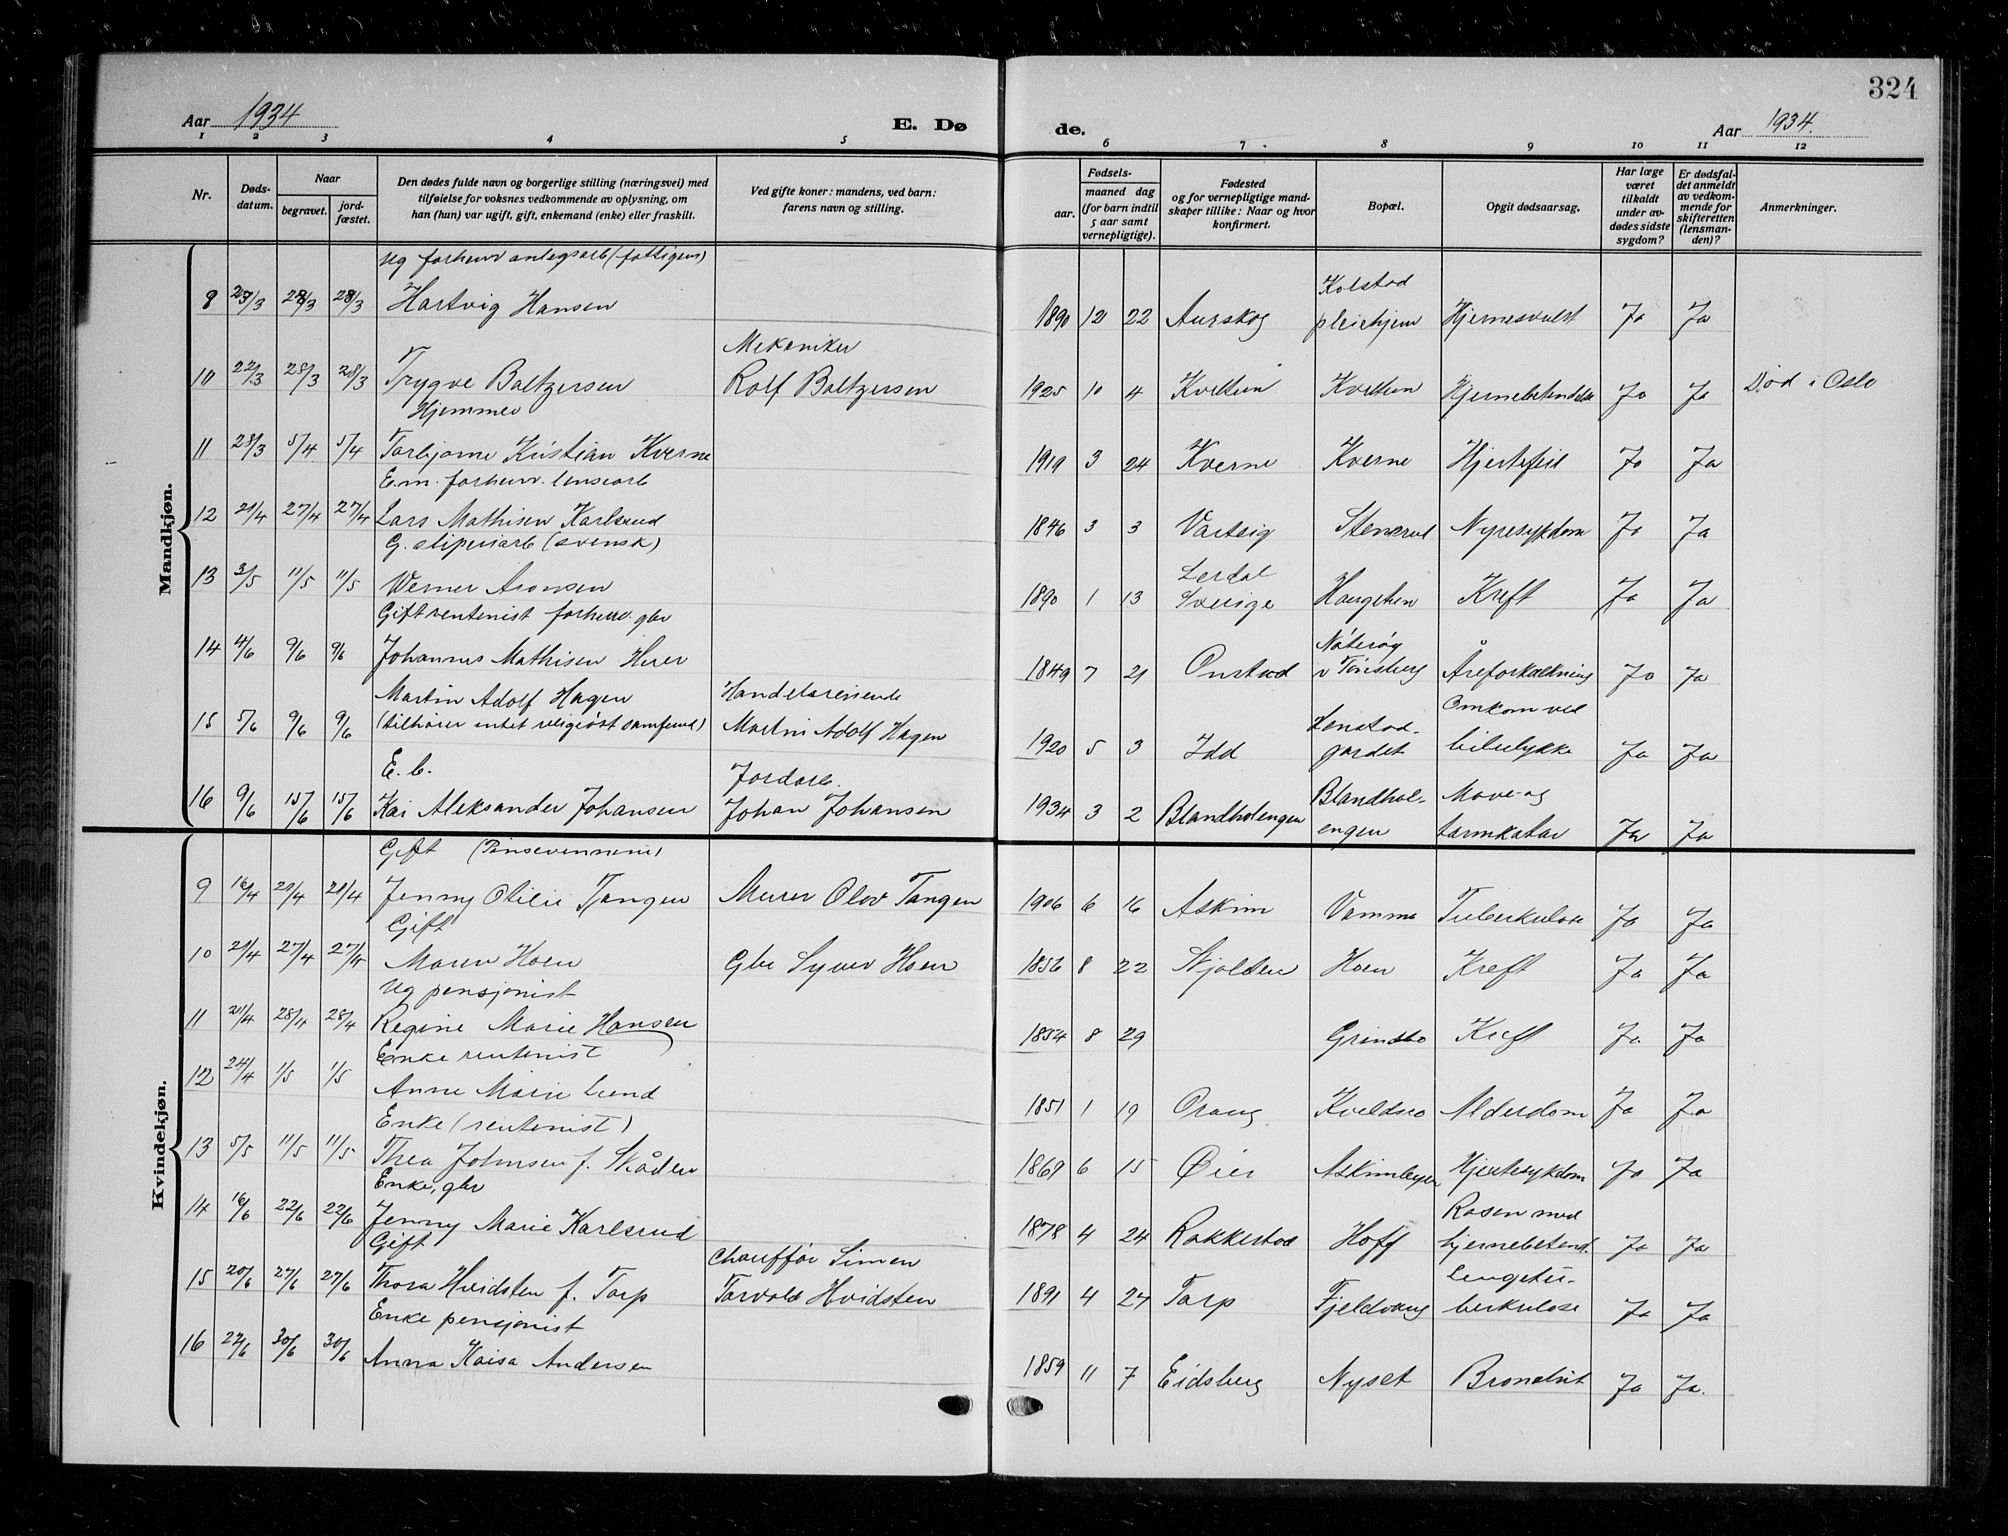 324
Aar 1934
E. Dø
de.
Aar 1934.
1 2 3 4 5 6 7 8 9 10 11 12
Nr.
Døds-
datum.
Naar
begravet.
jord-
fæstet.
Den dødes fulde navn og borgerlige stilling (næringsvei) med
tilføielse for voksnes vedkommende av oplysning, om
han (hun) var ugift, gift, enkemand (enke) eller fraskilt.
Ved gifte koner: mandens, ved barn:
farens navn og stilling.
Fødsels-
aar.
maaned dag
(for barn indtil
5 aar samt
vernepligtige).
Fødested
og for vernepligtige mand-
skaper tillike: Naar og hvor
konfirmert.
Bopæl.
Opgit dødsaarsag.
Har læge
været
tilkaldt
under av-
dødes sidste
sygdom?
Er dødsfal-
det anmeldt
av vedkom-
mende for
skifteretten
(lensman-
den)?
Anmerkninger.
Mandkjøn.
Ug forhenv anlegsarb (fattigens)
Kolstad
8 23/3 28/3 28/3 Hartvig Hansen 1890 12 22 Aurskog pleiehjem Hjernesvulst Ja Ja
Mekaniker
10 22/3 28/3 28/3 Trygve Baltzersen Rolf Baltzersen 1925 10 4 Kveltun Kveltun Hjernebetendelse Ja Ja Død i Oslo
Hjemmev
11 28/3 5/4 5/4 Torbjørne Kristian Kverne 1919 3 24 Kverne Kverne Hjertefeil Ja Ja
E.m. forhenv. lensearb
12 21/4 27/4 27/4 Lars Mathisen Karlsrud 1846 3 3 Varteig Stenerud Nyresykdom Ja Ja
G. sliperiarb (svensk)
Lerdal
13 3/5 11/5 11/5 Werner Aronsen 1890 1 13 Sverige Haugeten Kreft Ja Ja
Gift rentenist forhenv. gbr
Nøterøy
14 4/6 9/6 9/6 Johannes Mathisen Hever 1849 7 21 Onstad v Tønsberg Åreforkalkning Ja Ja
Martin Adolf Hagen Handelsreisende
Henstad- Omkom ved
15 5/6 9/6 9/6 (tilhører intet religiøst samfund) Martin Adolf Hagen 1920 5 3 Idd gardet bilulykke Ja Ja
E. b. Jordarb.
Blandhol- Mave- og
16 9/6 15/6 15/6 Kai Aleksander Johansen Johan Johansen 1934 3 2 Blandholengen engen tarmkatar Ja Ja
Kvindekjøn.
Gift (Pinsevennene)
9 16/4 21/4 21/4 Jenny Otilie Tangen Murer Olov Tangen 1906 6 16 Askim Vamma Tuberkulose Ja Ja
Gift
10 21/4 27/4 27/4 Maren Hoen Gbr Syver Hoen 1856 8 22 Skjolden Hoen Kreft Ja Ja
Ug pensjonist
11 21/4 28/4 28/4 Regine Marie Hansen 1854 8 29 Grindbo Kreft Ja Ja
Enke rentenist
12 24/4 1/5 1/5 Anne Marie Lund 1851 1 19 Oraug Kveldsro Alderdom Ja Ja
Enke (rentenist)
13 5/5 11/5 11/5 Thea Johnsen f. Skåden 1869 6 15 Øier Askimbyen Hjertesykdom Ja Ja
Enke, gbr
Rosen med
14 16/6 22/6 22/6 Jenny Marie Karlsrud 1878 4 24 Rakkestad Hoff hjernebetend. Ja Ja
Gift Chauffør Simen
Lungetu-
15 20/6 27/6 27/6 Thora Hvidsten f. Torp Torvald Hvidsten 1891 4 24 Torp Fjeldvang berkulose Ja Ja
Enke pensjonist
16 22/6 30/6 30/6 Anna Kaisa Andersen 1859 11 7 Eidsberg Nyset Bronchit Ja Ja.